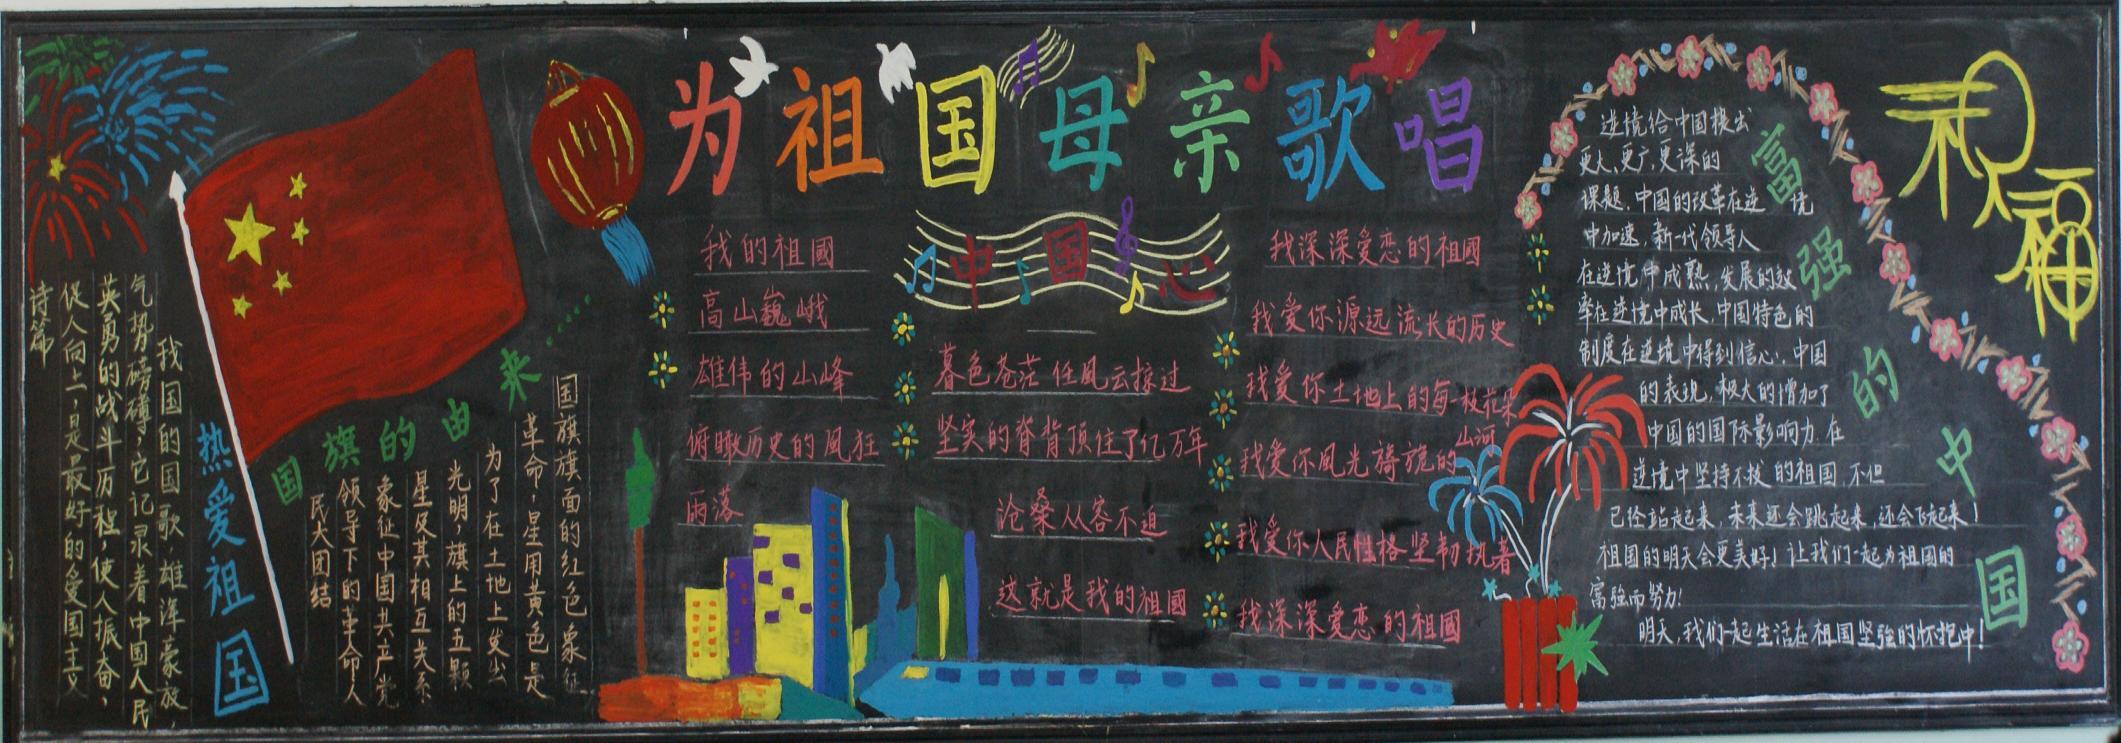 为祖国母亲歌唱
热爱祖国
我国的国歌,雄浑豪放,
气势磅礴,它记录着中国人民
英勇的战斗历程,使人振奋,
促人向上,是最好的爱国主义
诗篇
国旗的由来……
国旗旗面的红色象征
革命,星用黄色是
为了在土地上发出
光明,旗上的五颗
星及其相互关系
象征中国共产党
领导下的革命人
民大团结
我的祖國
高山巍峨
雄伟的山峰
俯瞰历史的風狂
雨落
中国心
暮色苍茫任風云掠过
坚实的脊背顶住了亿万年
沧桑从容不迫
这就是我的祖國
我深深爱恋的祖國
我爱你源远流长的历史
我爱你土地上的每一枝花朵
我爱你風光旖旎的山河
我爱你人民性格坚韧执著
我深深爱恋的祖國
富强的中国
逆境给中国提出
更大、更广、更深的
课题,中国的改革在逆境
中加速,新一代领导人
在逆境中成熟,发展的效
率在逆境中成长,中国特色的
制度在逆境中得到信心,中国
的表现,极大的增加了
中国的国际影响力.在
逆境中坚持不拔的祖国,不但
已经站起来,未来还会跳起来,还会飞起来!
祖国的明天会更美好!让我们一起为祖国的
富强而努力!
明天,我们一起生活在祖国坚强的怀抱中!
祝福